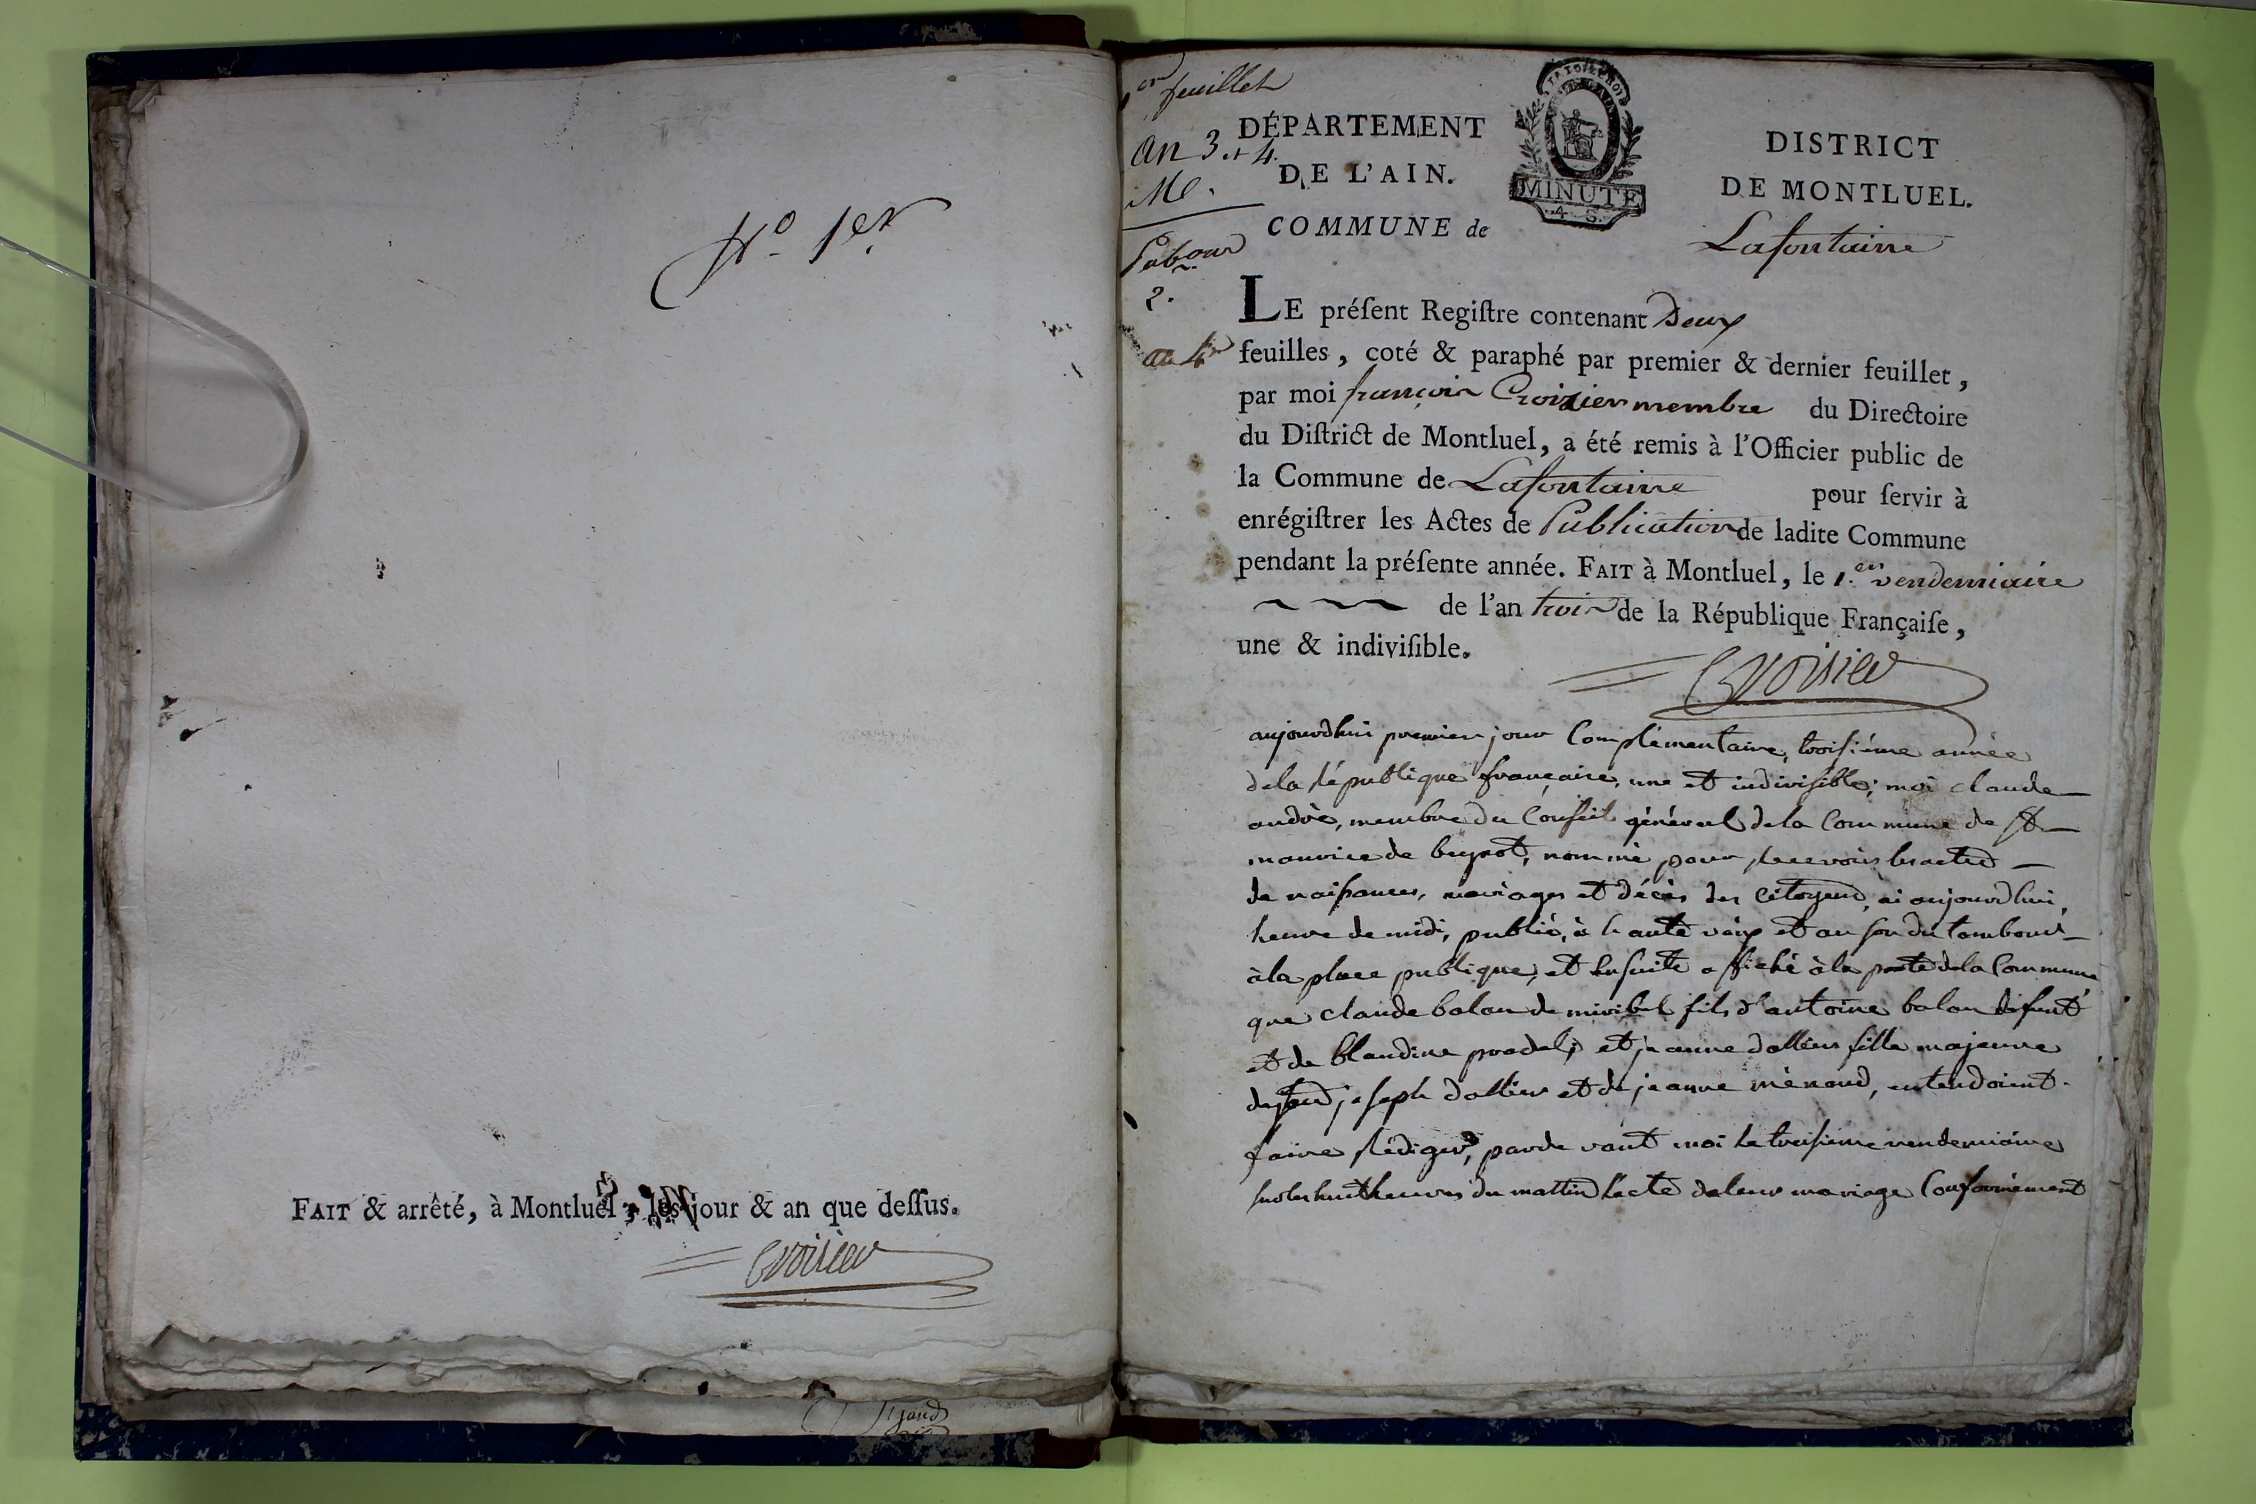 N.o 1er.
FAIT & arrêté, à Montluel, les jour & an que deſſus.
Croisier
1er feuillet
an 3 et 4.
DÉPARTEMENT
DE L'AIN.
COMMUNE de
MINUTE
4. S.
DISTRICT
DE MONTLUEL.
Lafontaine
2.
an 4
LE préſent Regiſtre contenant Deux
feuilles, coté & paraphé par premier & dernier feuillet,
par moi françois Croizier membre du Directoire
du Diſtrict de Montluel, a été remis à l'Officier public de
la Commune de Lafontaine pour ſervir à
enrégiſtrer les Actes de Publication de ladite Commune
pendant la préſente année. FAIT à Montluel, le 1.er vendemiaire
de l'an trois de la République Françaiſe,
une & indiviſible.
Croisier
aujourdhui premier jour Complémentaire, troisiéme année
dela république française, une et indivisible; moi claude
andré, membre du Conseil général dela Commune de st
maurice de beynost, nommé pour recevoir les actes
de naissances, mariages et décès des citoyens, ai aujourdhui,
heure de midi, publié, à haute voix et au son du tambour
à la place publique, et ensuite affiché à la porte dela Commune
que claude balan de miribel fils d'antoine balan défunt
et de blandine pradel, et jeanne dallier fille majeure
de joseph dallier et de jeanne ménand, entendoient
faire rédiger, par de vant moi le troisieme vendemiaire
sur les huit heures du mattin lacte deleur mariage Conformément